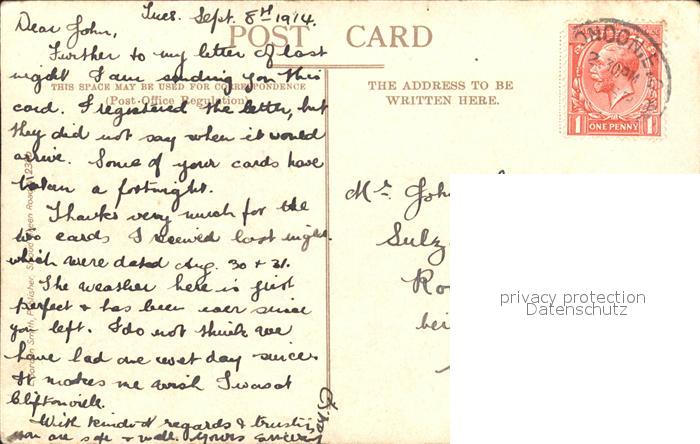 Tues. Sept. 8th 1914.
Dear John,
Further to my letter of last
night I am sending you this
card. I registered the letter, but
they did not say when it would
arrive. Some of your cards have
taken a fortnight.
Thanks very much for the
two cards I received last night.
which were dated Aug. 30 + 31.
The weather here is just
perfect + has been ever since
you left. I do not think we
have had one wet day since.
It makes me wish I was at
Cliftonville.
With kindest regards & trusting
you are safe + well. Yours sincerely
POST CARD
THIS SPACE MAY BE USED FOR CORRESPONDENCE
(Post-Office Regulation)
THE ADDRESS TO BE
WRITTEN HERE.
1 ONE PENNY 1
Mr. John
Sulz
Ro
bei
privacy protection
Datenschutz